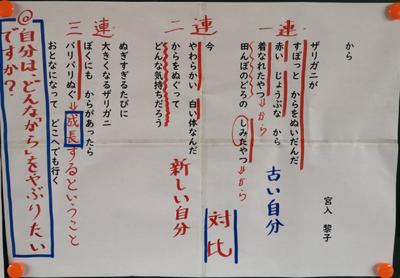 から
宮入 黎子
一連
ザリガニが
すぽっと からをぬいだんだ
赤い じょうぶな から
着なれたやつ ⇒から
田んぼのどろの しみたやつ ⇒から
古い自分
対比
二連
今
やわらかい 白い体なんだ
からをぬぐって
どんな気持ちだろう
新しい自分
三連
ぬぎすぎるたびに
大きくなるザリガニ
ぼくにも からがあったら
バリバリぬぐ ⇒成長するということ
おとなになって どこへでも行く
◎自分は「どんなから」をやぶりたい
ですか?